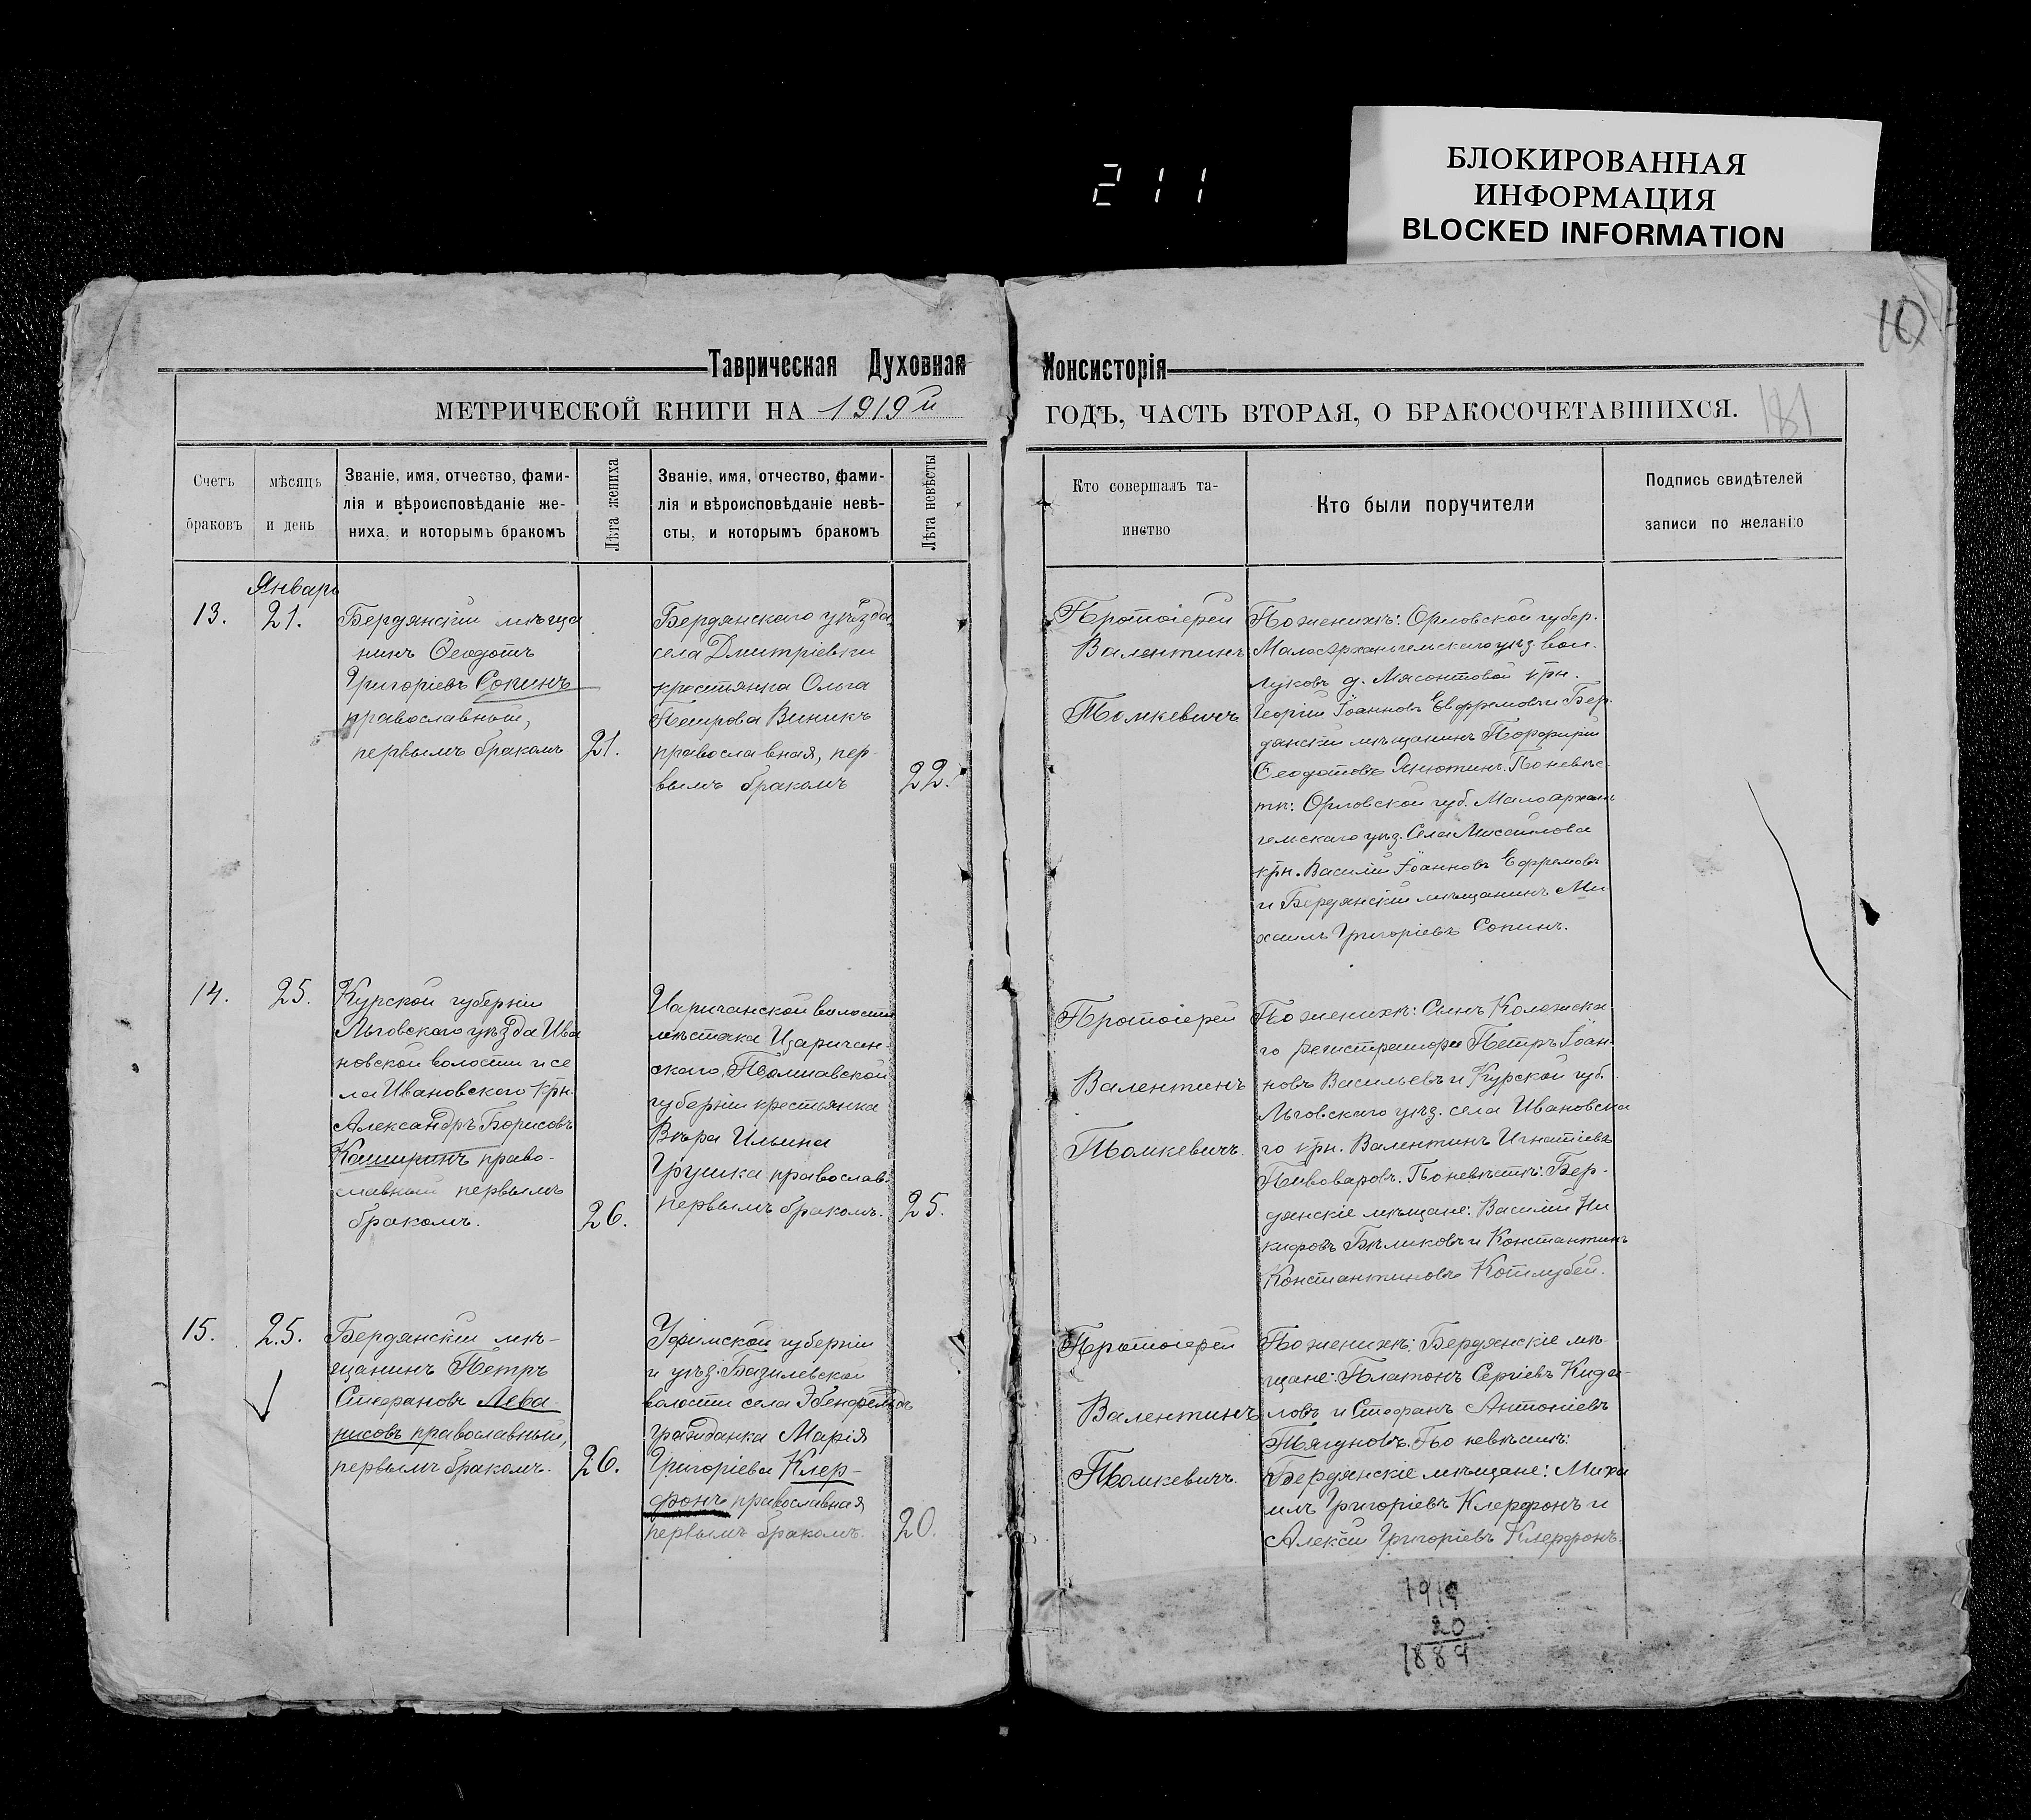 БЛОКИРОВАННАЯ
ИНФОРМАЦИЯ
BLOCKED INFORMATION
211
10
181
Таврическая Духовная Консисторія
МЕТРИЧЕСКОЙ КНИГИ НА 1919й ГОДЪ, ЧАСТЬ ВТОРАЯ, О БРАКОСОЧЕТАВШИХСЯ.
Счетъ
браковъ
мѣсяць
и день
Званіе, имя, отчество, фами-
лія и вѣроисповѣданіе же-
ниха, и которымъ бракомъ
Лѣта жениха
Званіе, имя, отчество, фами-
лія и вѣроисповѣданіе невѣ-
сты, и которымъ бракомъ
Лѣта невѣсты
Кто совершалъ та-
инство
Кто были поручители
Подпись свидѣтелей
записи по желанію
Январь
13.
21.
Бердянскій мѣща
нинъ Феодотъ
Григоріевъ Сопинъ
православный,
первымъ бракомъ
21.
Бердянскаго уѣзда,
села Дмитріевки
крестьянка Ольга
Петрова Виникъ
православная, пер-
вымъ бракомъ
22.
Протоіерей
Валентинъ
Томкевичъ
По женихѣ: Орловской губер.
Малоархангельскаго уѣз. вол.
Луковъ д. Мясоѣдовой крн.
Георгій Іоанновъ Евфремовъ и Бер-
дянскій мѣщанинъ Порфирій
Феодотовъ Анютинъ. По невѣс-
тѣ: Орловской губ. Малоархан
гельскаго уѣз. Села
крн. Василій Іоанновъ Ефремовъ
и Бердянскій мѣщанинъ Ми
хаилъ Григоріевъ Сопинъ.
14.
25.
Курской губерніи
Льговскаго уѣзда Ива
новской волости и се
ла Ивановскаго крн.
Александръ Борисовъ
Каширинъ право-
славный первымъ
бракомъ.
26.
Царичанской волости
мѣстечка Царичан-
скаго, Полтавской
губерніи крестьянка
Вѣра Ильина
Грушка православ.
первымъ бракомъ.
25.
Протоіерей
Валентинъ
Томкевичъ.
По женихѣ: Сынъ Колежска
го регистратора Петръ Іоан-
новъ Васильевъ и Курской губ.
Льговскаго уѣз. села Ивановска
го крн. Валентинъ Игнатіевъ
Пивоваровъ. По невѣстѣ: Бер-
дянскіе мѣщане: Василій Ни
кифоровъ Бѣликовъ и Константинъ
Константиновъ Котлубей.
15.
25.
Бердянскій мѣ-
щанинъ Петръ
Стефановъ Лева-
нисовъ православный,
первымъ бракомъ.
26.
Уфимской губерніи
и уѣз. Базилевской
волости села Эбенфельдъ
гражданка Марія
Григоріева Клер-
фонъ православная
первымъ бракомъ.
20.
Протоіерей
Валентинъ
Томкевичъ.
По женихѣ: Бердянскіе мѣ-
щане: Платонъ Сергіевъ Кида-
ловъ и Стефанъ Антоніевъ
Тягуновъ. По невѣстѣ:
Бердянскіе мѣщане: Миха
илъ Григоріевъ Клерфонъ и
Алексѣй Григоріевъ Клерфонъ.
1919
20
1889